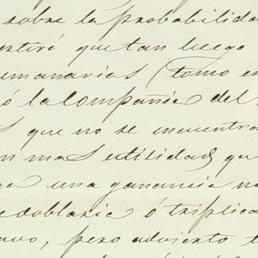 sobre la probabilida
estiré que tan luego
emanarias (tomo en
ó la compañia del
que no se encuentra
n mas utilidad, qu
a una ganancia no
edoblaria ó triplica
avo, pero advierto t